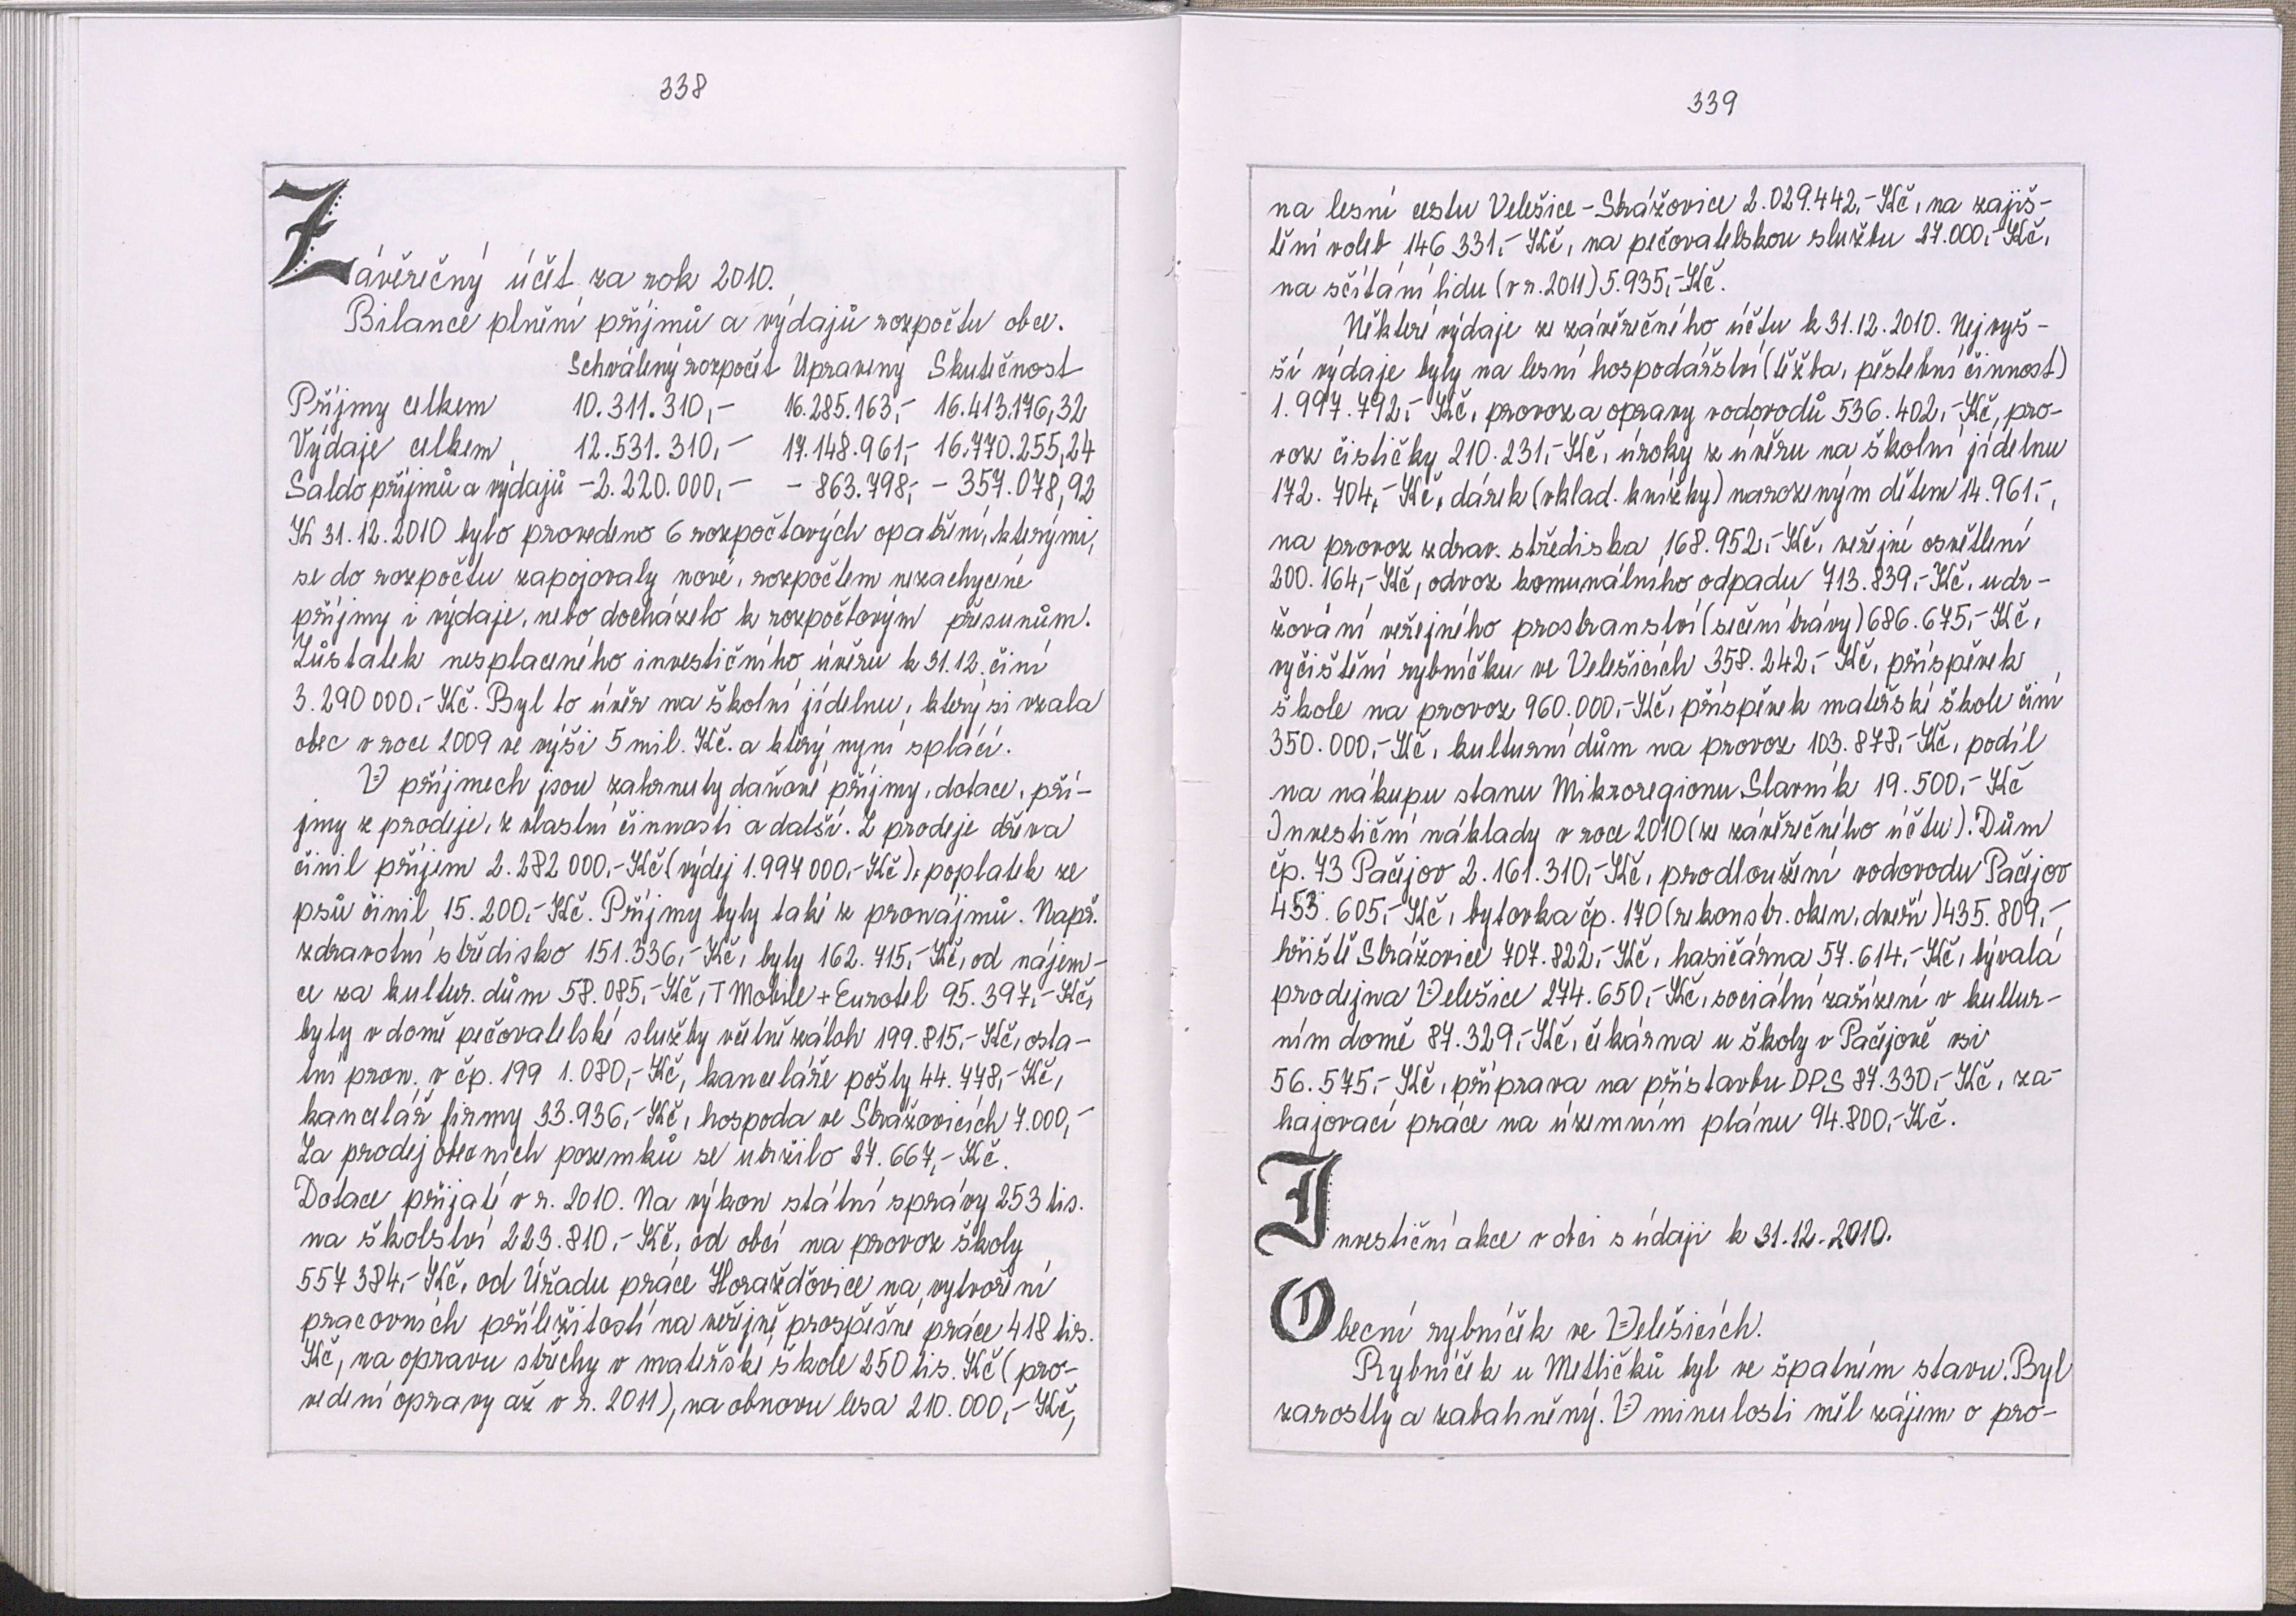 338
Závěrečný účet za rok 2010.
Bilance plnění příjmů a výdajů rozpočtu obce.
Schválený rozpočet Upravený Skutečnost
Příjmy celkem 10.311.310,- 16.285.163,- 16.413.176,32
Výdaje celkem 12.531.310,- 17.148.961,- 16.770.255,24
Saldo příjmů a výdajů -2.220.000,- - 863.798,- - 357.078,92
K 31.12.2010 bylo provedeno 6 rozpočtových opatření, kterými,
se do rozpočtu zapojovaly nové, rozpočtem nezachycené
příjmy i výdaje, nebo docházelo k rozpočtovým přesunům.
Zůstatek nesplaceného investičního úvěru k 31.12. činí
3.290 000,- Kč. Byl to úvěr na školní jídelnu, který si vzala
obec v roce 2009 ve výši 5 mil. Kč. a který nyní splácí.
V příjmech jsou zahrnuty daňové příjmy, dotace, pří-
jmy z prodeje, z vlastní činnosti a další. Z prodeje dřeva
činil příjem 2.282 000,- Kč (výdej 1.997 000,- Kč), poplatek ze
psů činil 15.200,- Kč. Příjmy byly také z pronájmů. Např.
zdravotní středisko 151.336,- Kč, byty 162.715,- Kč, od nájem-
ce za kultur. dům 58.085,- Kč, T Mobile + Eurotel 95.397,- Kč,
byty v domě pečovatelské služby včetně záloh 199.815,- Kč, osta-
tní pron. v čp. 199 1.080,- Kč, kanceláře pošty 44.778,- Kč,
kancelář firmy 33.936,- Kč, hospoda ve Strážovicích 7.000,-
Za prodej obecních pozemků se utržilo 27.667,- Kč.
Dotace přijaté v r. 2010. Na výkon státní správy 253 tis.
na školství 223.810,- Kč, od obcí na provoz školy
557 384,- Kč, od Úřadu práce Horažďovice na vytvoření
pracovních příležitostí na veřejně prospěšné práce 418 tis.
Kč, na opravu střechy v mateřské škole 250 tis. Kč (pro-
vedení opravy až v r. 2011), na obnovu lesa 210.000,- Kč,
339
na lesní cestu Velešice - Strážovice 2.029.442,- Kč, na zajiš-
tění voleb 146 331,- Kč, na pečovatelskou službu 27.000,- Kč,
na sčítání lidu (v r. 2011) 5.935,- Kč.
Některé výdaje ze závěrečného účtu k 31.12.2010. Nejvyš-
ší výdaje byly na lesní hospodářství (těžba, pěstební činnost)
1.997.792,- Kč, provoz a opravy vodovodů 536.402,- Kč, pro-
voz čističky 210.231,- Kč, úroky z úvěru na školní jídelnu
172.704,- Kč, dárek (vklad. knížky) narozeným dětem 14.961,-,
na provoz zdrav. střediska 168.952,- Kč, veřejné osvětlení
200.164,- Kč, odvoz komunálního odpadu 713.839,- Kč, udr-
žování veřejného prostranství (sečení trávy) 686.675,- Kč,
vyčištění rybníčku ve Velešicích 358.242,- Kč, příspěvek
škole na provoz 960.000,- Kč, příspěvek mateřské škole činí
350.000,- Kč, kulturní dům na provoz 103.878,- Kč, podíl
na nákupu stanu Mikroregionu Slavník 19.500,- Kč
Investiční náklady v roce 2010 (ze závěrečného účtu). Dům
čp. 73 Pačejov 2.161.310,- Kč, prodloužení vodovodu Pačejov
453.605,- Kč, bytovka čp. 170 (rekonstr. oken, dveří) 435.809,-,
hřiště Strážovice 707.822,- Kč, hasičárna 57.614,- Kč, bývalá
prodejna Velešice 274.650,- Kč, sociální zařízení v kultur-
ním domě 87.329,- Kč, čekárna u školy v Pačejově vsi
56.575,- Kč, příprava na přístavbu DPS 87.330,- Kč, za-
hajovací práce na územním plánu 94.800,- Kč.
Investiční akce v obci s údaji k 31.12.2010.
Obecní rybníček ve Velešicích.
Rybníček u Metličků byl ve špatném stavu. Byl
zarostlý a zabahněný. V minulosti měl zájem o pro-